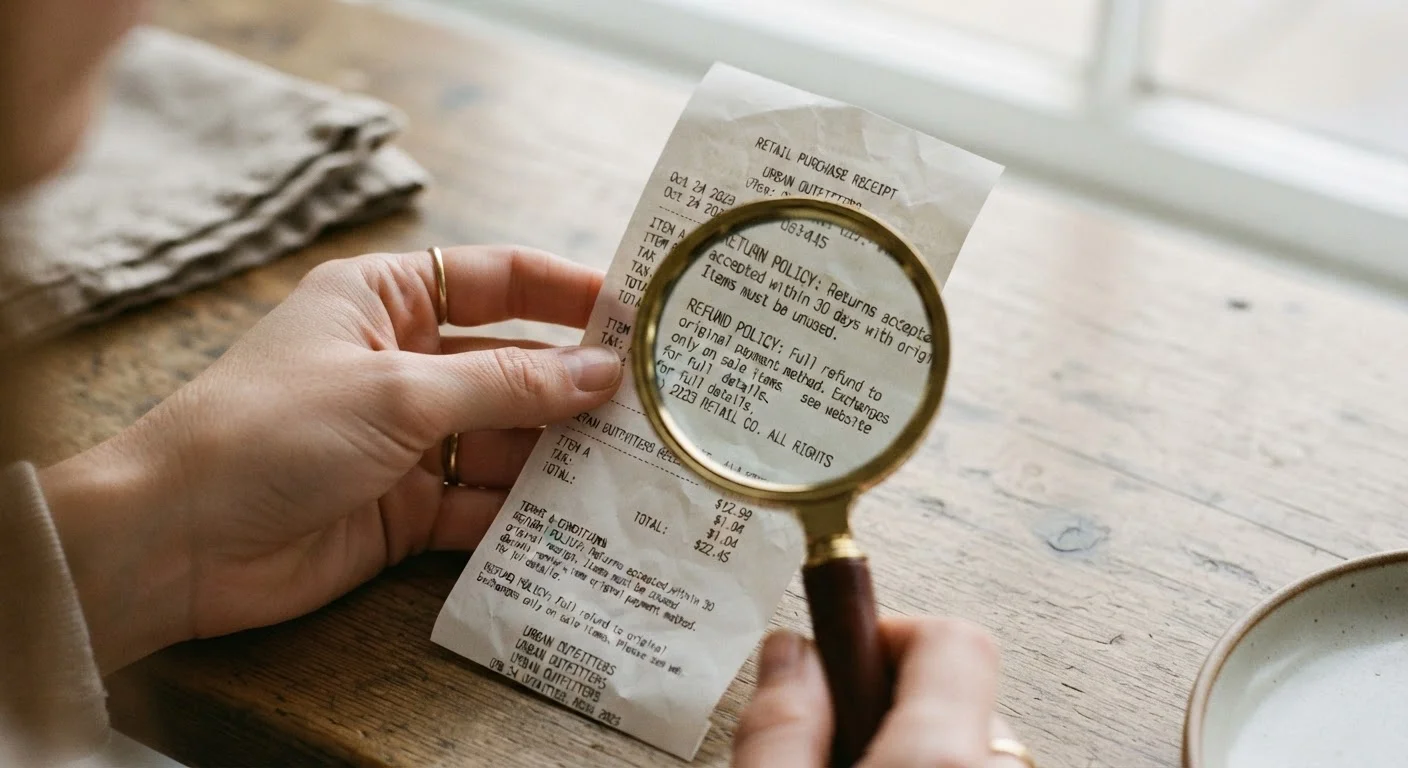 RETAIL PURCHASE RECEIPT
URBAN OUTFITTERS
Oct 24 2023
Oct 24 202
ITEM A
ITEM
TAX
TAX
TOTA
063445
RETURN POLICY: Returns accepte
accepted within 30 days with origi
Items must be unused.
REFUND POLICY: Full refund to
original payment method. Exchanges
only on sale items. see website
for full details.
for full details,
2123 RETAIL CO. ALL RIGHTS
ITEM
TAX:
URBAN OUTFITTERS
ITEM A $12.99
TAX: $1.04
TOTAL: TOTAL: $1.04
$22.45
TERMS & CONDITIONS
RETURN POLICY: Returns accepted within 30
original receipt. Items must be unused
original payment method.
for full details.
REFUND POLICY: Full refund to original
Exchanges only on sale items. Please see
URBAN OUTFITTERS
URBAN OUTFITTERS
URBAN OUTFITTERS
2023